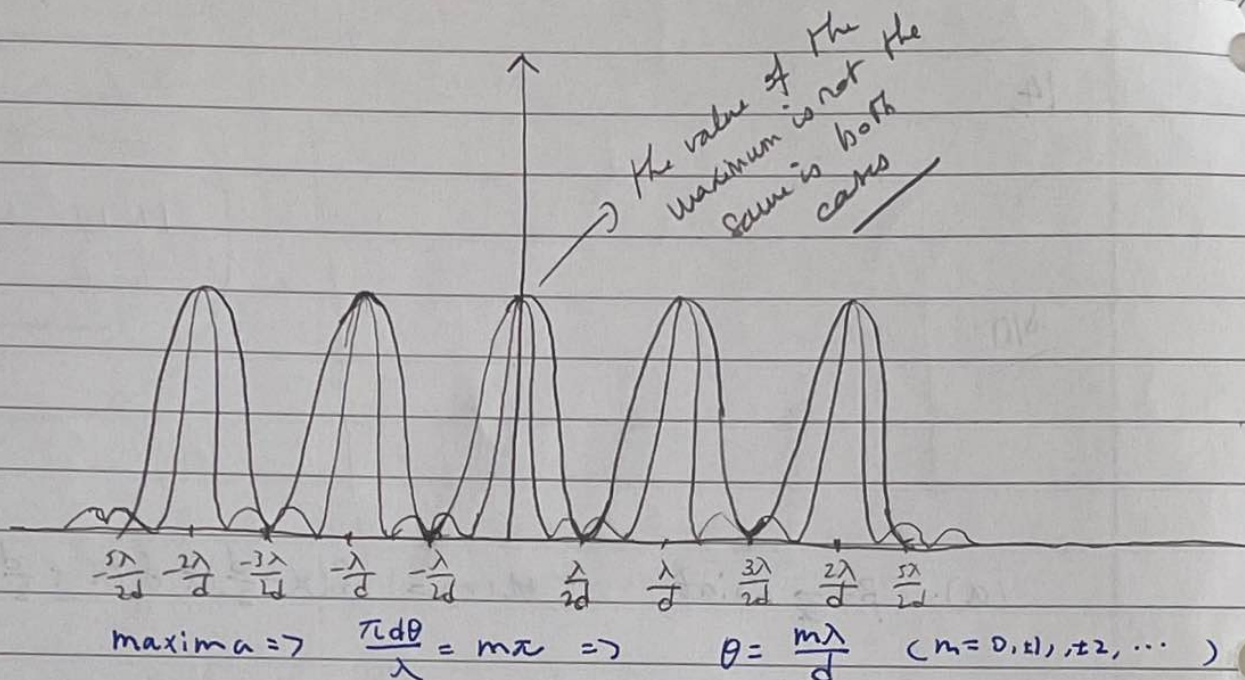 the value of the
maximum is not the
same is both
cases
-5λ/2d -2λ/d -3λ/2d -λ/d -λ/2d λ/2d λ/d 3λ/2d 2λ/d 5λ/2d
maxima => πdθ/λ = mπ => θ = mλ/d (m = 0, ±1, , ±2, ... )